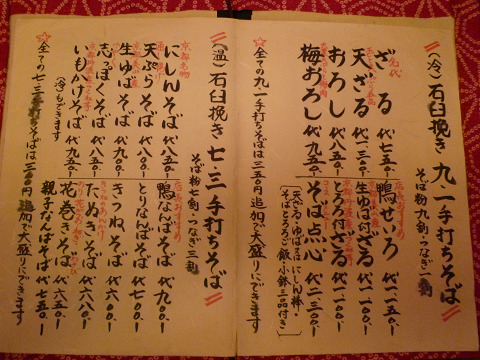 (冷) 石臼挽き 九・一 手打ちそば
そば粉九割・つなぎ一割
ざる 代七五〇、ー
天ざる 代一三〇〇、ー
おろし 代八五〇、ー
梅おろし 代八五〇、ー
鴨せいろ 代一一五〇、ー
生ゆば付ざる 代一一〇〇、ー
にしん付ざる 代一一〇〇、ー
そば点心 代一三〇〇、ー
天ざる・ゆばそば・にしん棒・
そばとろろご飯 小鉢二品付き
☆全ての九・一手打ちそばは三五〇円追加で大盛りにできます
(温) 石臼挽き 七・三 手打ちそば
そば粉七割・つなぎ三割
京都名物
にしんそば 代八五〇、ー
天ぷらそば 代八五〇、ー
生ゆばそば 代九〇〇、ー
志っぽくそば 代八五〇、ー
いもかけそば 代九五〇、ー
(冷)もできます
鴨なんばそば 代九〇〇、ー
とりなんばそば 代八〇〇、ー
きつねそば 代六八〇、ー
たぬきそば 代六八〇、ー
花巻きそば 代六五〇、ー
親子なんばそば 代七五〇、ー
☆全ての七・三手打ちそばは三〇〇円追加で大盛りにできます